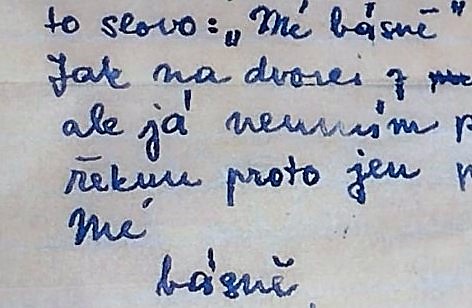 to slovo: „Mé básně"
Jak na dvorci
ale já neumím
řeknu proto jen
Mé
básně